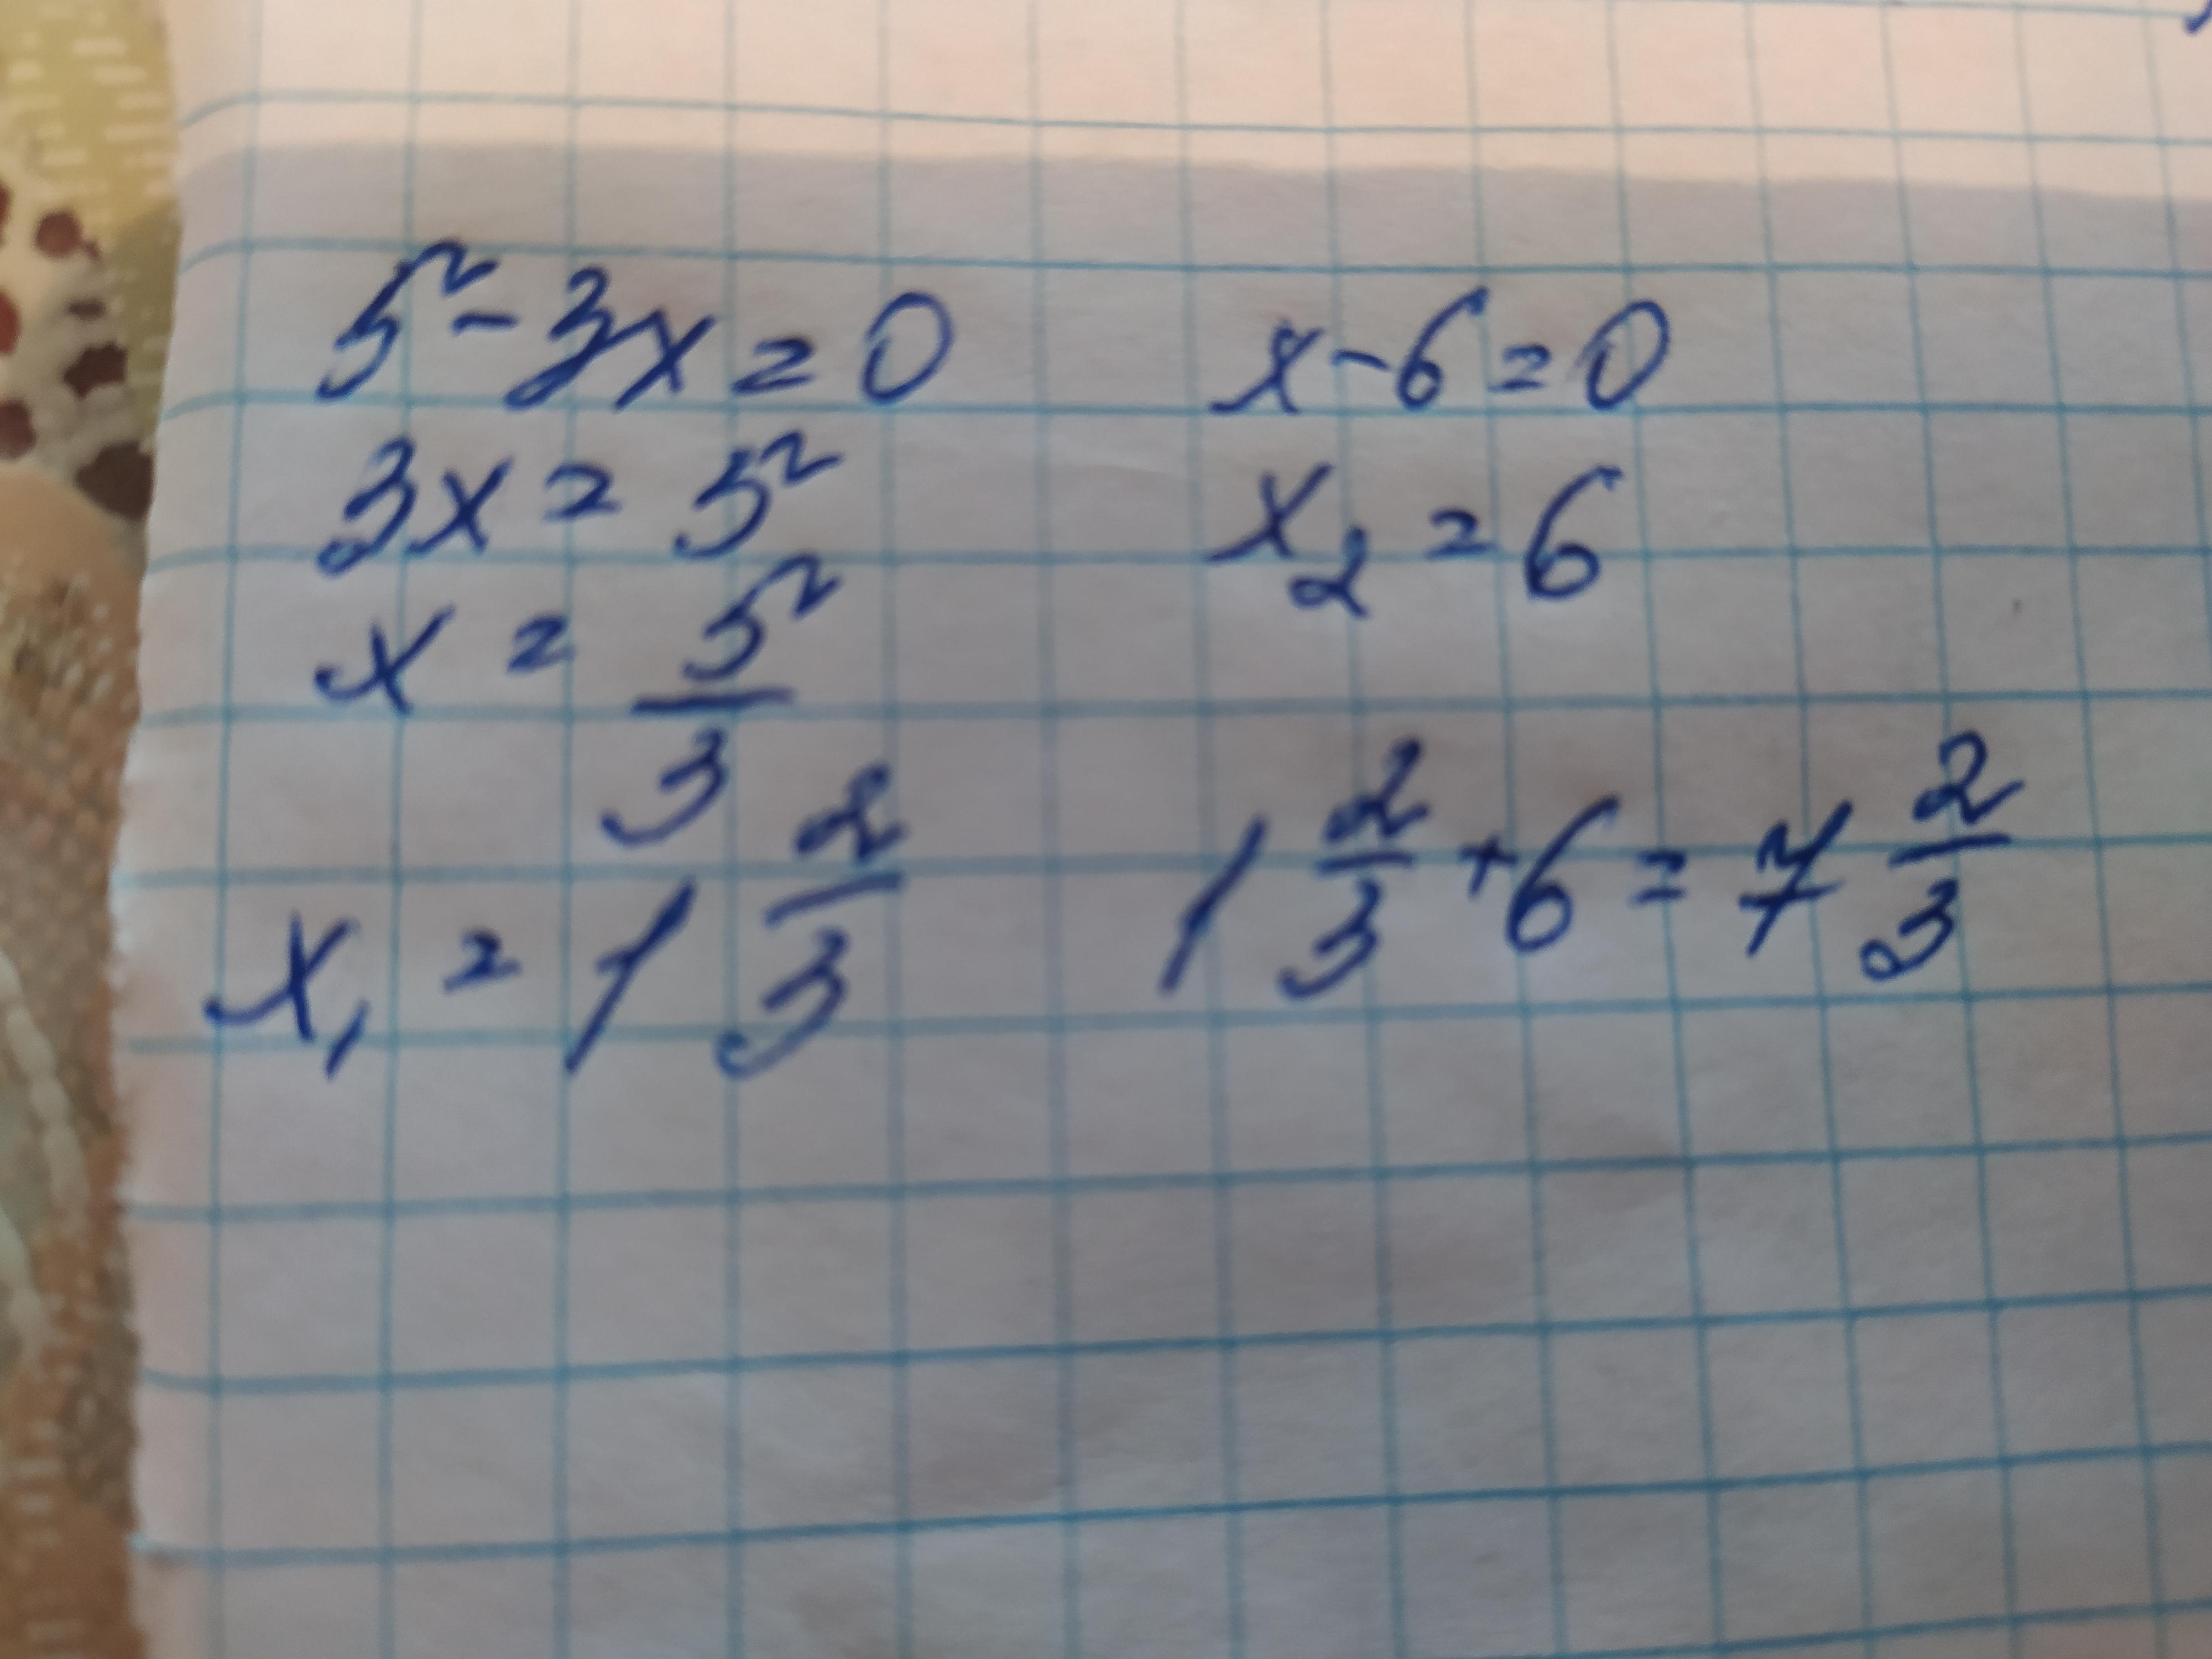 5 - 3x = 0
3x = 5
x = 5/3
x₁ = 1 2/3
x - 6 = 0
x₂ = 6
1 2/3 + 6 = 7 2/3